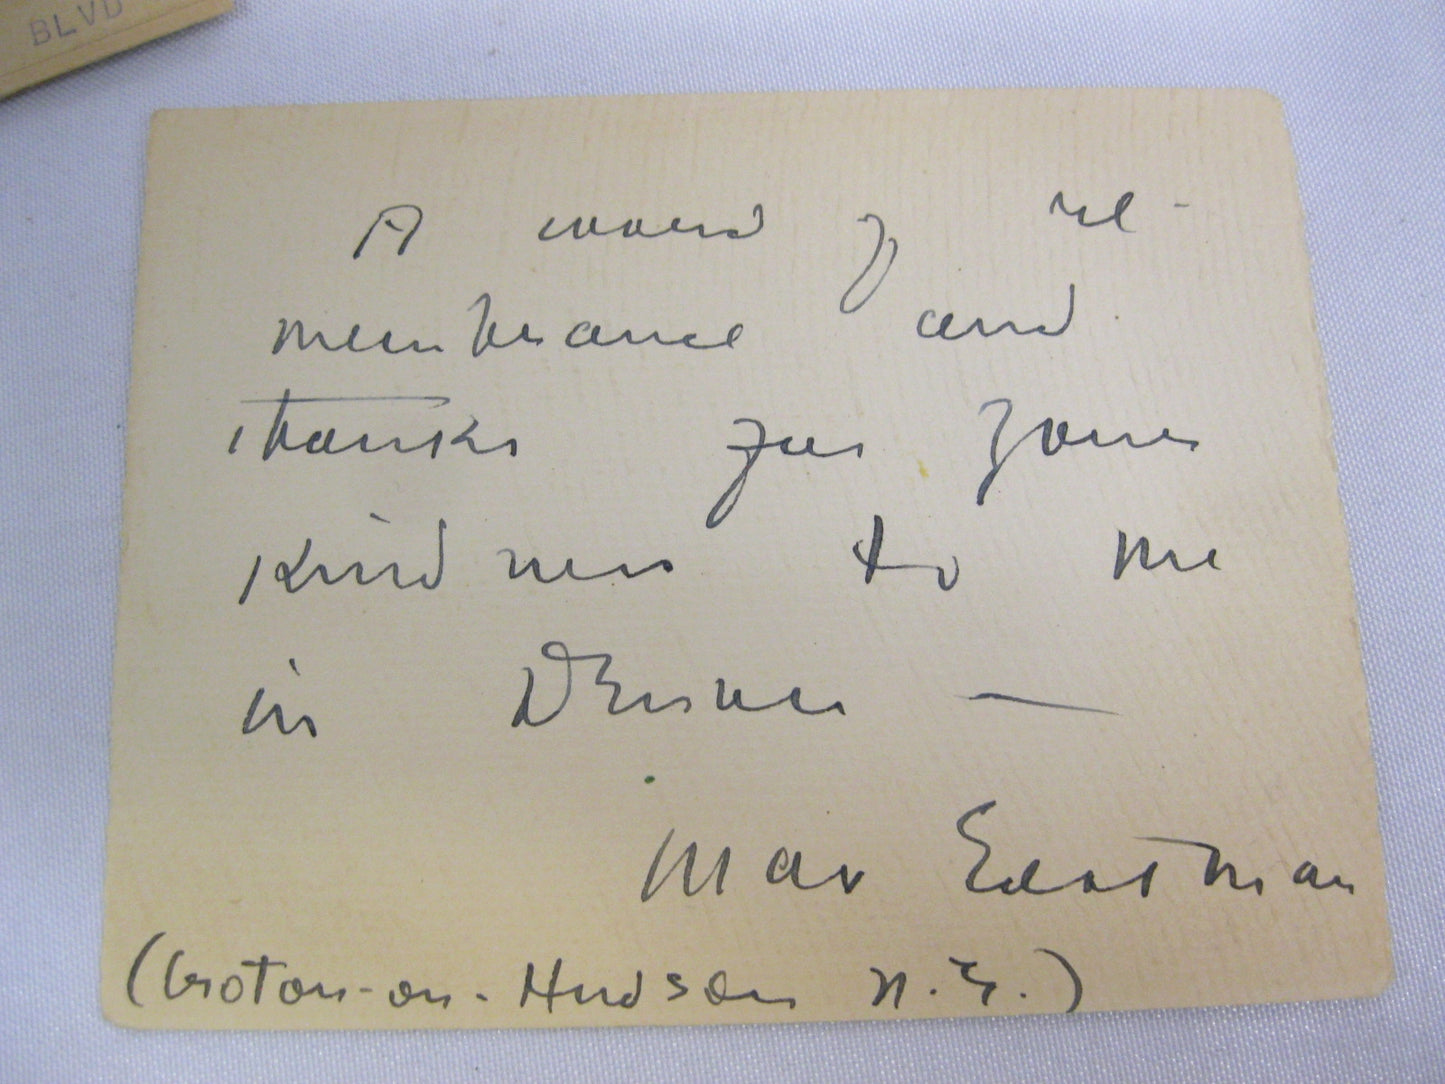 BLVD
A word of re-
membrance and
thanks for your
kindness to me
in Denver —
Max Eastman
(Croton-on-Hudson N.Y.)